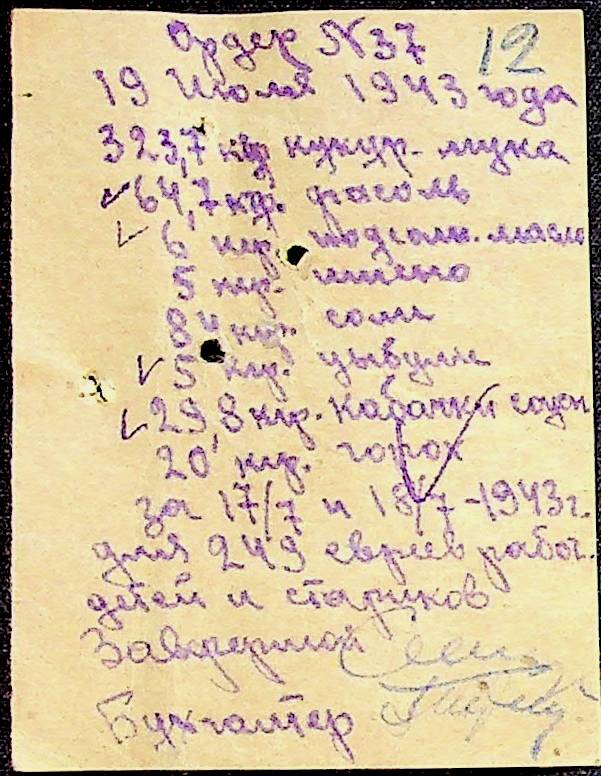 Ордер N 37
12
19 Июля 1943 года
323,7 кгр кукур. мука
64,7 кгр. фасоль
6 кгр. подсолн. масло
5 кгр. пшено
84 кгр. соли
5 кгр. цыбули
29,8 кгр. кабачки
20 кгр. горох
за 17/7 и 18/7 - 1943 г.
для 249 евреев работ.
детей и стариков
Завфермой
Бухгалтер